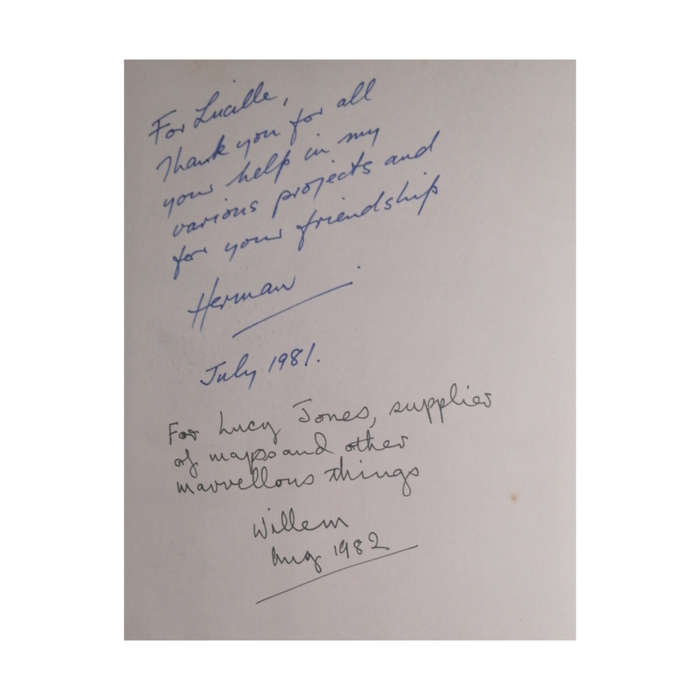 For Lucille,
Thank you for all
your help in my
various projects and
for your friendship
Herman
July 1981.
For Lucy Jones, supplier
of maps and other
marvellous things
Willem
Aug 1982